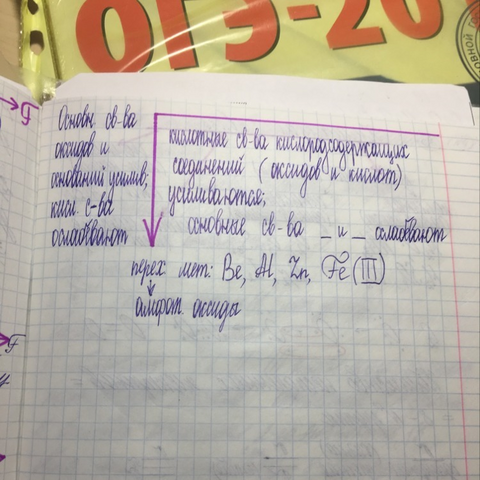 ОГЭ-20
Основн. св-ва
оксидов и
оснований усилив;
кисл. с-ва
ослабевают
кислотные св-ва кислородсодержащих
соединений (оксидов и кислот)
усиливаются;
основные св-ва _ и _ ослабевают
перех. мет: Be, Al, Zn, Fe (III)
амфот. оксиды